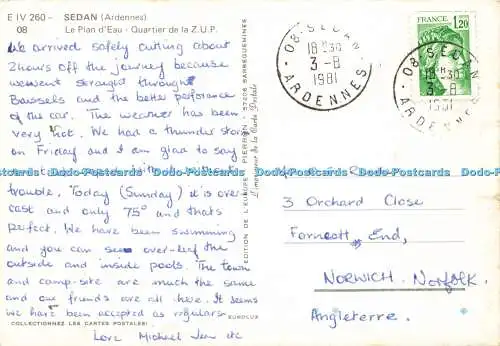 E IV 260 - SEDAN (Ardennes)
08 Le Plan d'Eau - Quartier de la Z.U.P.
We arrived safely cutting about
2 hours off the journey because
we went straight through
Brussels and the better perforance
of the car. The weather has been
very hot. We had a thunder storm
on Friday and I am glad to say
trouble. Today (Sunday) it is over
cast and only 75° and thats
perfect. We have been swimming
and you can see over-leaf the
outside and inside pools. The town
and camp-site are much the same
and our friends are all here. It seems
we have been accepted as regulars.
COLLECTIONNEZ LES CARTES POSTALES
EUROLUX
Love Michael Jean etc
EDITION DE L'EUROPE PIERRON - 57206 SARREGUEMINES
L'imagerie de la Carte Postale
08 SEDAN
18H30
3-8
1981
ARDENNES
FRANCE
1,20
08 SEDAN
18H30
3-8
1981
ARDENNES
3 Orchard Close
Forncett End,
NORWICH Norfolk.
Angleterre.
www.delcampe.net